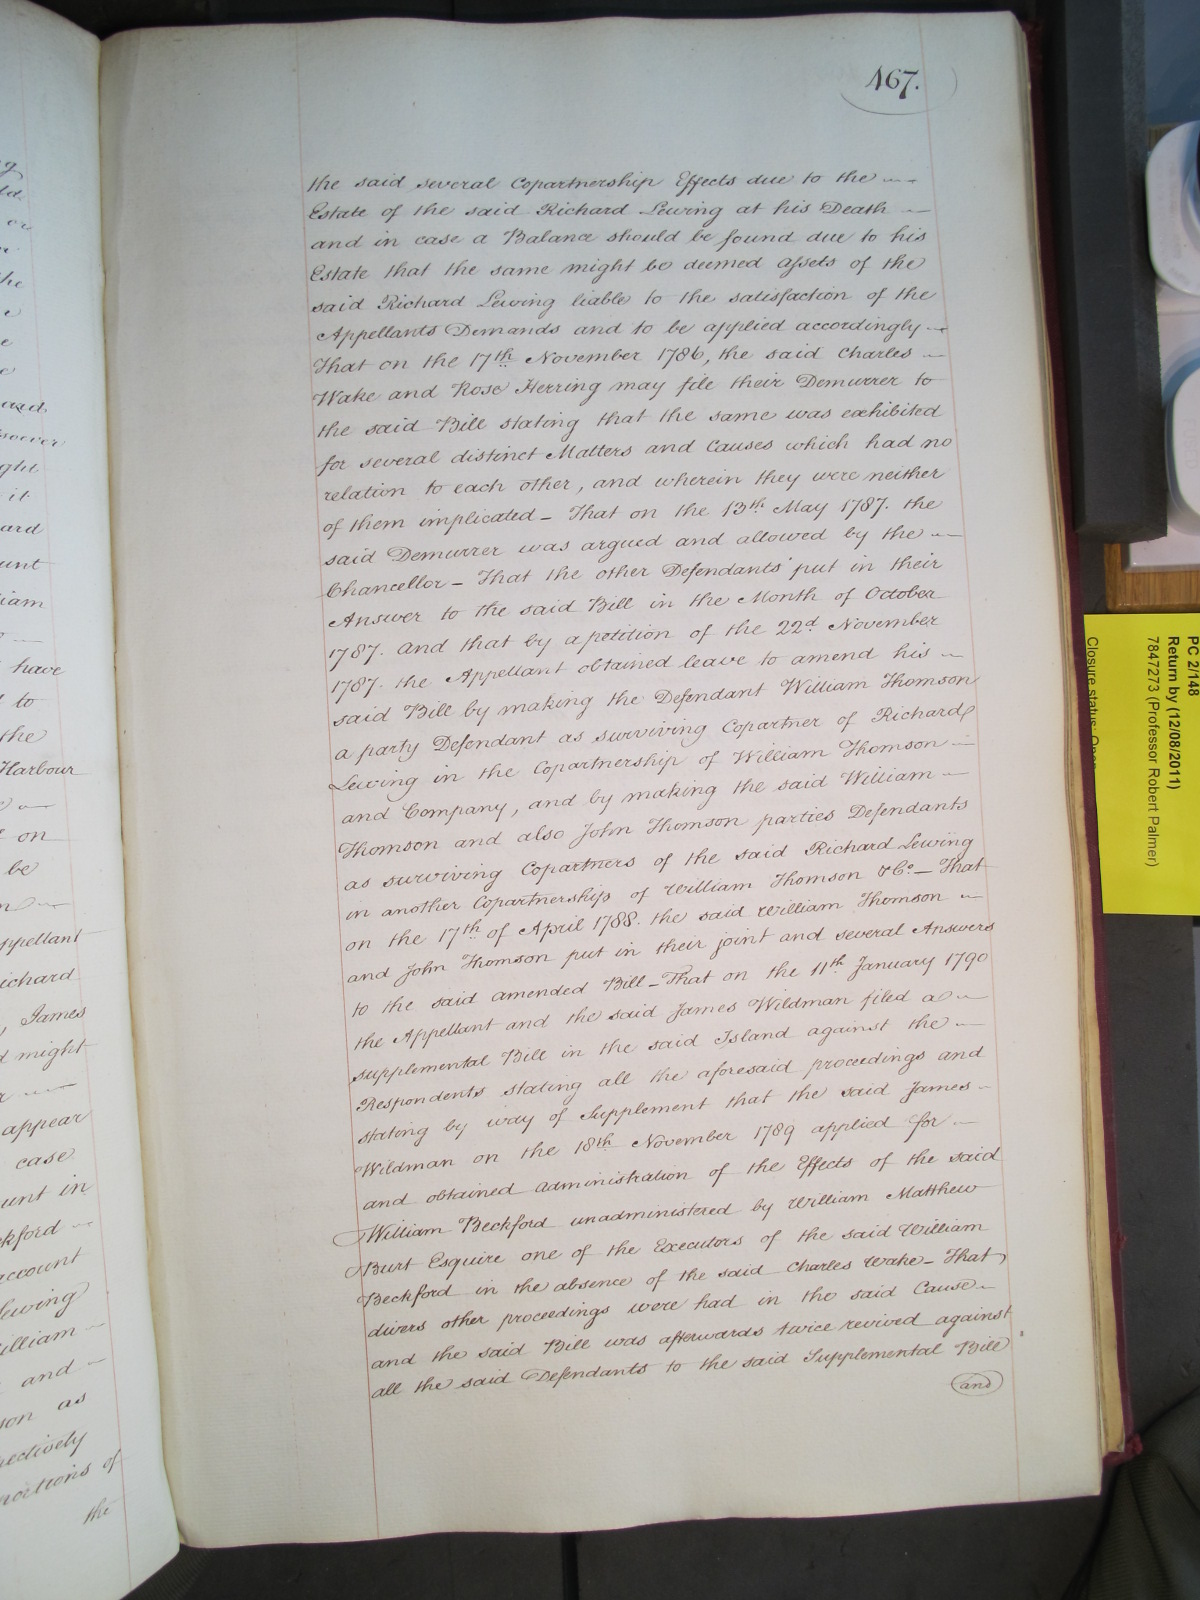 467.
the said several Copartnership Effects due to the
Estate of the said Richard Lewing at his Death
and in case a Balance should be found due to his
Estate that the same might be deemed assets of the
said Richard Lewing liable to the satisfaction of the
Appellants Demands and to be applied accordingly
That on the 17th November 1786, the said Charles
Wake and Rose Herring may file their Demurrer to
the said Bill stating that the same was exhibited
for several distinct Matters and Causes which had no
relation to each other, and wherein they were neither
of them implicated – That on the 13th May 1787. the
said Demurrer was argued and allowed by the
Chancellor – That the other Defendants put in their
Answer to the said Bill in the Month of October
1787. and that by a petition of the 22d November
1787. the Appellant obtained leave to amend his
said Bill by making the Defendant William Thomson
a party Defendant as surviving Copartner of Richard
Lewing in the Copartnership of William Thomson
and Company, and by making the said William
Thomson and also John Thomson parties Defendants
as surviving Copartners of the said Richard Lewing
in another Copartnership of William Thomson & Co. – That
on the 17th of April 1788. the said William Thomson
and John Thomson put in their joint and several Answers
to the said amended Bill – That on the 11th January 1790
the Appellant and the said James Wildman filed a
supplemental Bill in the said Island against the
Respondents stating all the aforesaid proceedings and
stating by way of Supplement that the said James
Wildman on the 18th November 1789 applied for
and obtained Administration of the Effects of the said
William Beckford unadministered by William Matthew
Burt Esquire one of the Executors of the said William
Beckford in the absence of the said Charles Wake – That
divers other proceedings were had in the said Cause
and the said Bill was afterwards twice revived against
all the said Defendants to the said Supplemental Bill
and
er
ard
unt
iam
have
to
the
Harbour
on
be
appellant
ichard
, James
d might
appear
case
unt in
kford
account
Lewing
illiam
and
son as
pectively
of
the
PC 2/148
Return by (12/08/2011)
7847273 (Professor Robert Palmer)
Closure status: Open